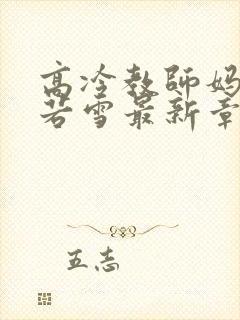 高冷教師妈
若雪最新章
五志